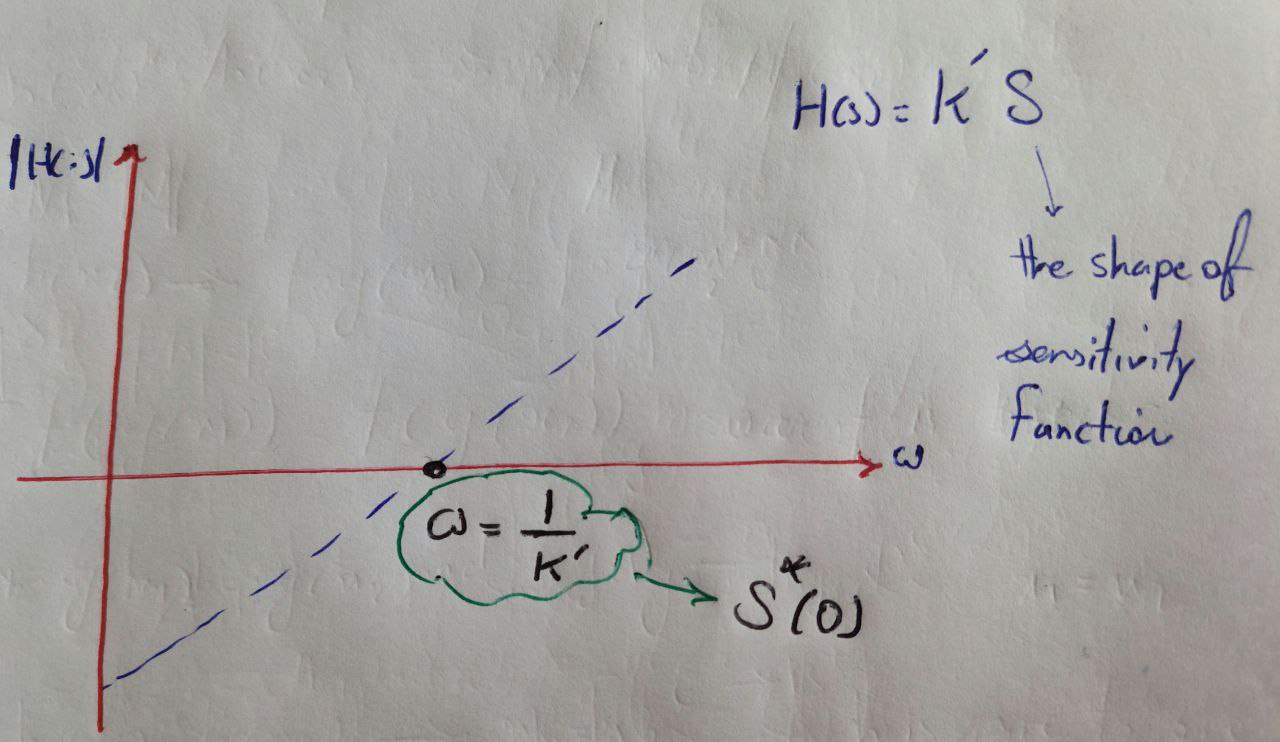 H(s) = K′ S
|H(s)|
the shape of
sensitivity
function
ω
ω = 1/K′
S*(0)